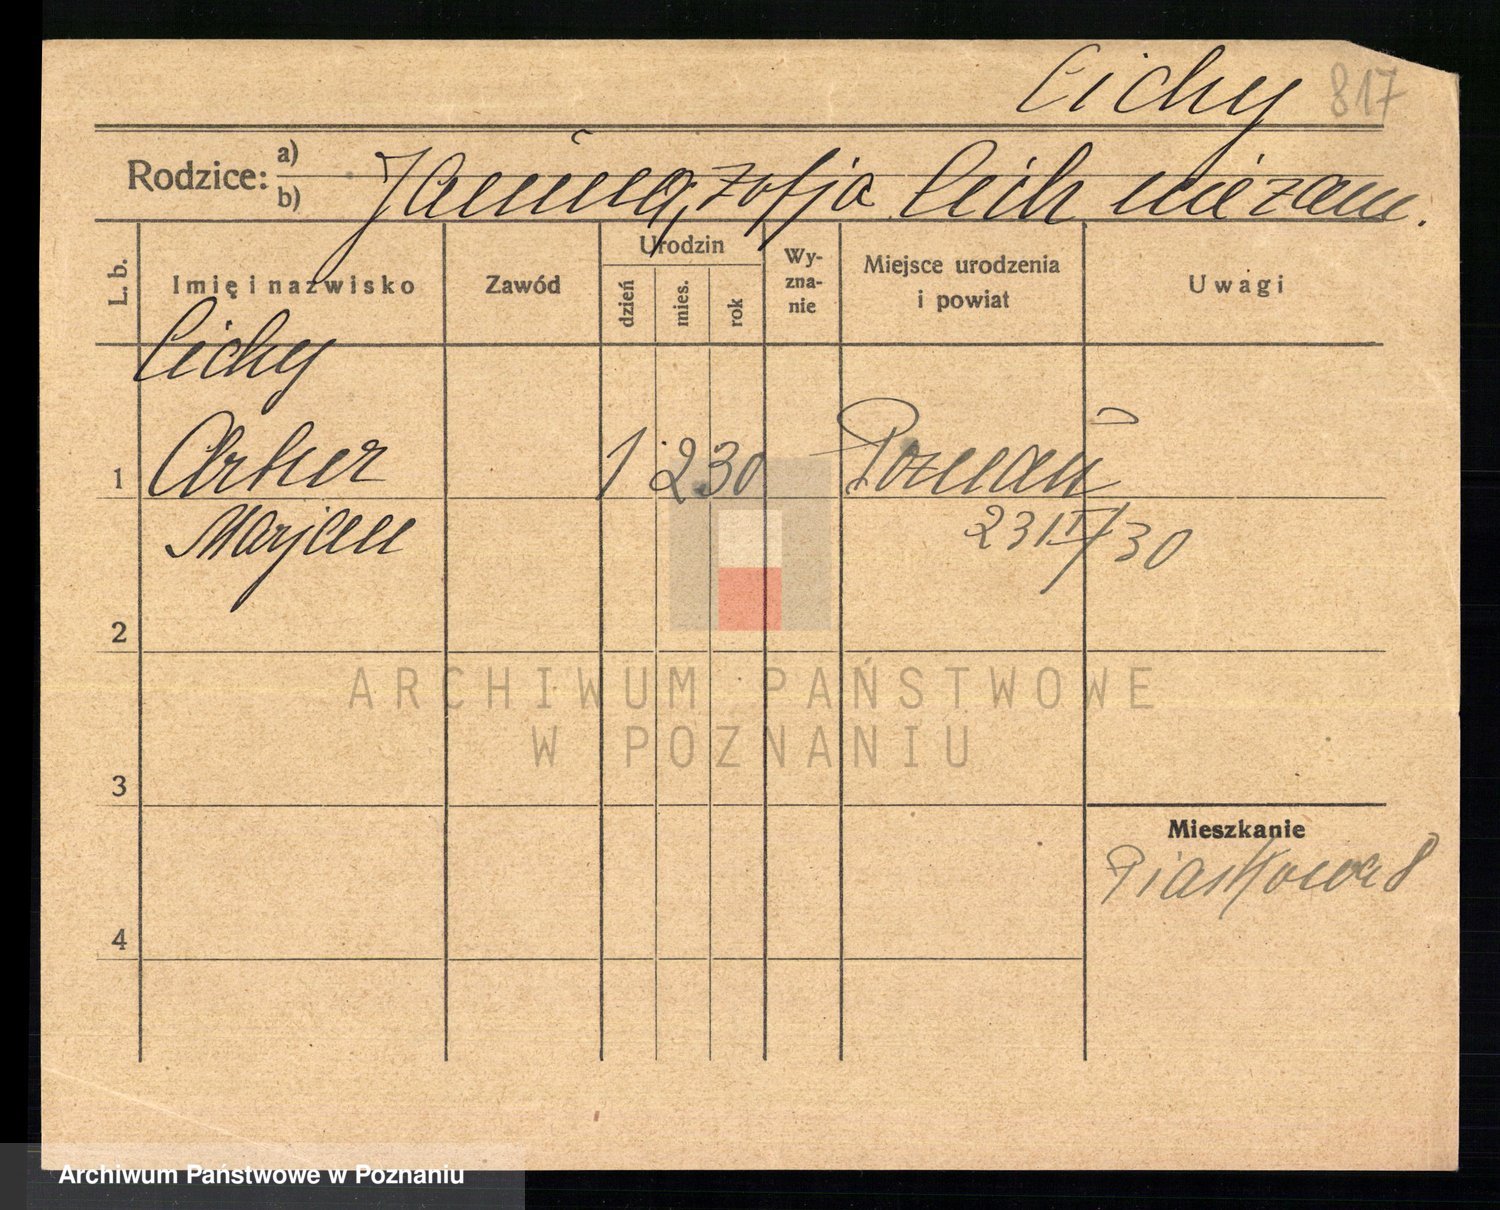 Cichy 817
Rodzice: a)
b) Janina, Zofja Cich niezam.
L. b.
Imię i nazwisko
Zawód
Urodzin
dzień
mies.
rok
Wy-
zna-
nie
Miejsce urodzenia
i powiat
Uwagi
Cichy
1 Artur 1 2 30 Poznań
Marjan 23 II/30
2
ARCHIWUM PAŃSTWOWE
W POZNANIU
3
Mieszkanie
Piaskowa 8
4
Archiwum Państwowe w Poznaniu